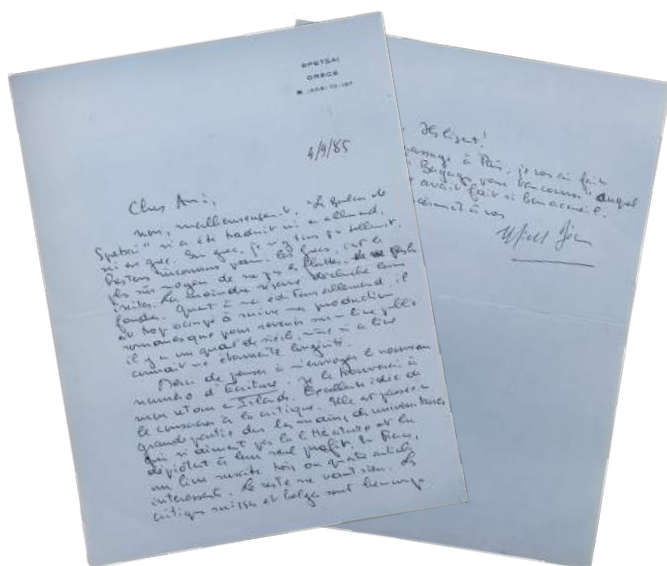 SPETSAI
GRECE
4/9/85
Cher Ami,
non, malheureusement, "Le garden de
Spetsai" n'a été traduit ni en allemand,
ni en grec. En grec, je n'y tiens pas tellement.
Rester inconnu pour les Grecs, est le
plus sûr moyen de ne pas
irriter. La moindre réserve déclenche leurs
foudres. Quant à mon éditeur allemand, il
est trop occupé à suivre ma production
romanesque pour revenir sur un livre publié
il y a un quart de siècle, même si ce livre
connaît une étonnante longévité.
Merci de penser à m'envoyer le nouveau
numéro d'Écriture. Je le trouverai à
mon retour en Irlande. Excellente idée de
le consacrer à la critique. Elle est passée en
grande partie dans les mains de
qui n'aiment pas la littérature et la
à leur seul profit. En France,
un livre suscite trois ou quatre articles
intéressants. Le reste ne vaut rien. Les
critiques suisse et belge sont beaucoup
passage à Paris, je vous ai fait
Bagages pour Vancouver auquel
avait fait si bon accueil.
à vous